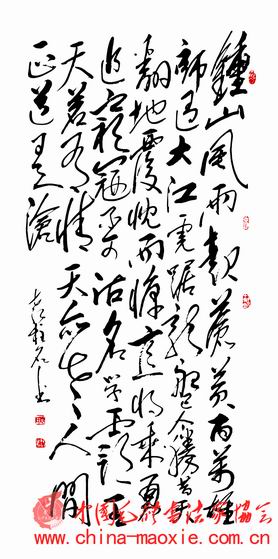 鍾山風雨起蒼黃百萬雄
師過大江虎踞龍盤今勝昔天
翻地覆慨而慷宜將剩勇
追窮寇不可沽名學霸王
天若有情天亦老人間
正道是滄
中國毛體書法家協會
www.china-maoxie.com.cn